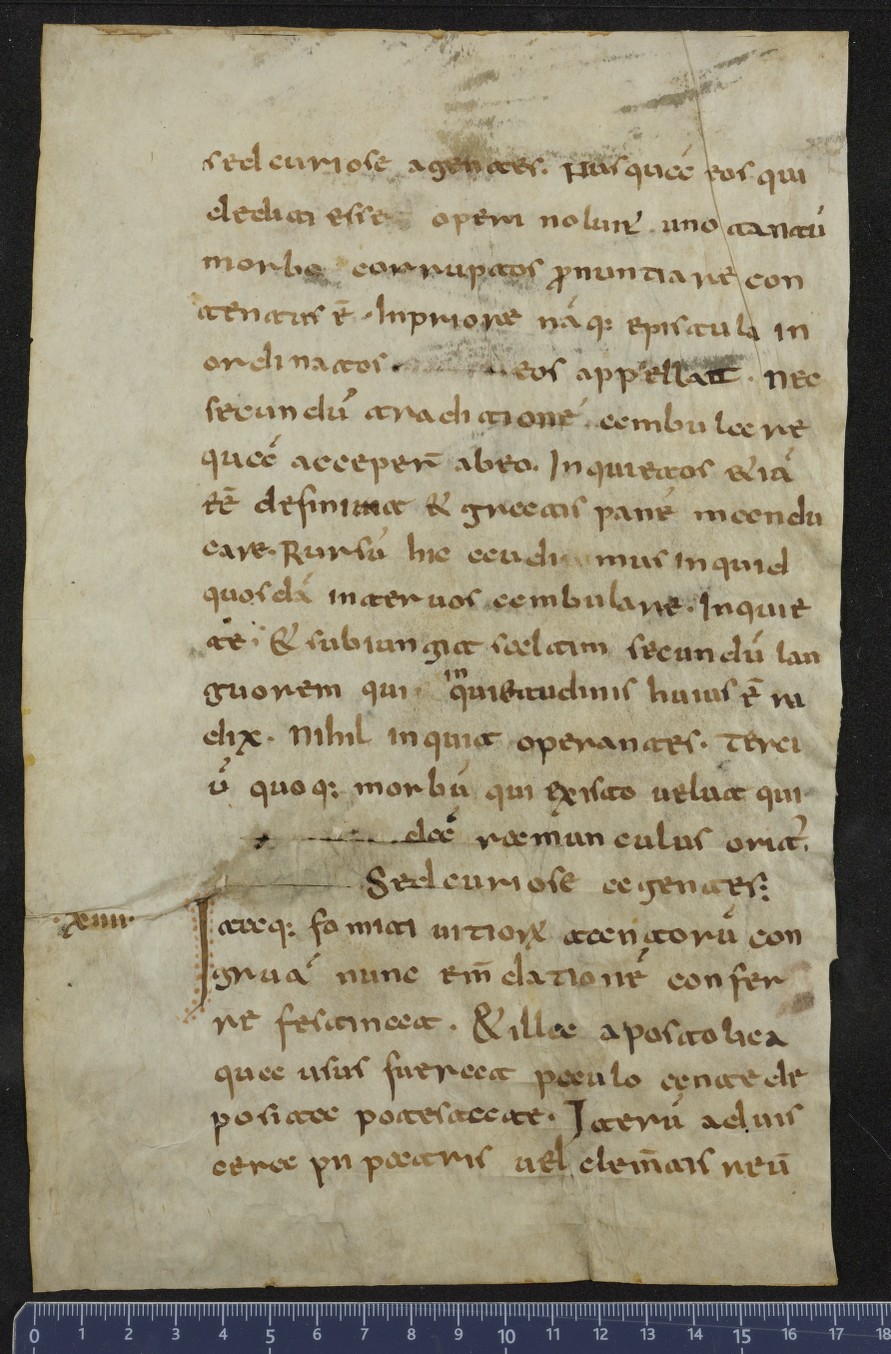 sed curiose agentes. Nusquā eos qui
dediti esse operi nolunt̄ uno tantū
morbo corruptos ꝓnuntiare con
tentus ē. In priore nāq: epistula in
ordinatos eos appellat. nec
secundū traditionē ambulare
quā acceper̄ abeo. Inquietos & iā
tē definiuit & gratis panē mandu
care. Rursū hic audi mus inquid
quosdā inter uos ambulare. Inquie
te. & subiungit statim secundū lan
guorem qui inquietudinis huius ē ra
dix. Nihil inquit operantes. Terci
ū quoq: morbū qui ex isto uelut qui
dā ramunculus orit̄.
Sed curiose agentes:
.xiiii. Itaq: fomiti uitioꝝ tantorū con
gruā nunc em̄dationē confer
re festinat. & illa apostolica
qua usus fuerat paulo ante de
posita potestate. Iterū ad uis
cera pii patris uel clem̄tis